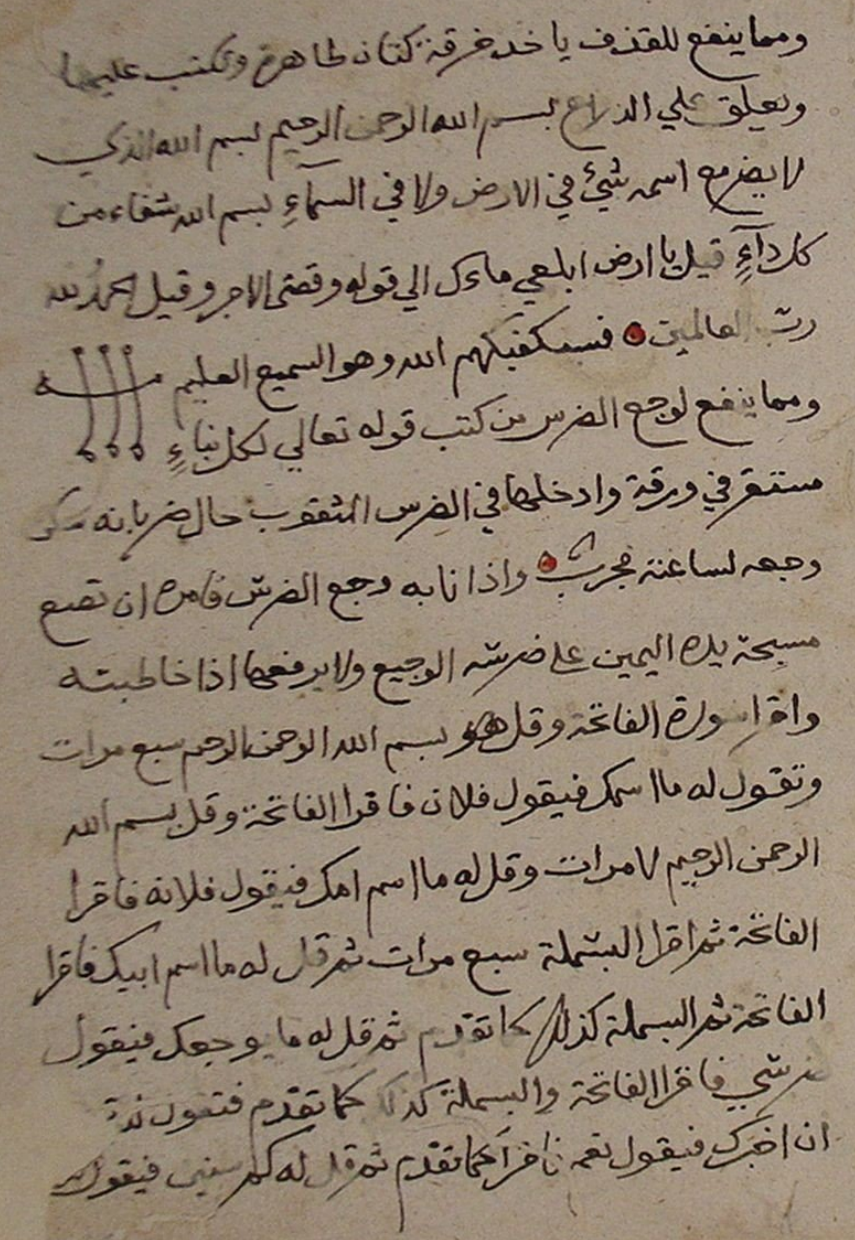 ومما ينفع للقذف ياخد خرقة كتان طاهرة وتكتب عليها
ويعلق علي الذراع بسم الله الرحمن الرحيم بسم الله الذي
لا يضر مع اسمه شيئ في الارض ولا في السمآءِ بسم الله شفاء من
كل دآءٍ قيل يا ارض ابلعي ماءك الي قوله وقضى الامر وقيل الحمد لله
رب العالمين فسيكفيكهم الله وهو السميع العليم
ومما ينفع لوجع الضرس من كتب قوله تعالي لكل نباءٍ
مستقر في ورقة وادخلها في الضرس المثقوب حال ضربانه سكن
وجعه لساعته مجرب واذا نابه وجع الضرس فامره ان تضع
مسبحة يده اليمين على ضرسه الوجيع ولا يرفعها اذا خاطبته
واقرا سورة الفاتحة وقل بسم الله الرحمن الرحيم سبع مرات
وتقول له ما اسمك فيقول فلان فاقرا الفاتحة وقل بسم الله
الرحمن الرحيم ٧ مرات وقل له ما اسم امك فيقول فلانه فاقرا
الفاتحة ثم اقرا البسملة سبع مرات ثم قل له ما اسم ابيك فاقرا
الفاتحة ثم البسملة كذلك كما تقدم ثم قل له ما يوجعك فيقول
ضرسي فاقرا الفاتحة والبسملة كذلك كما تقدم فتقول
ان اخبرك فيقول نعم فاقرا كما تقدم ثم قل له كم سنين فيقول